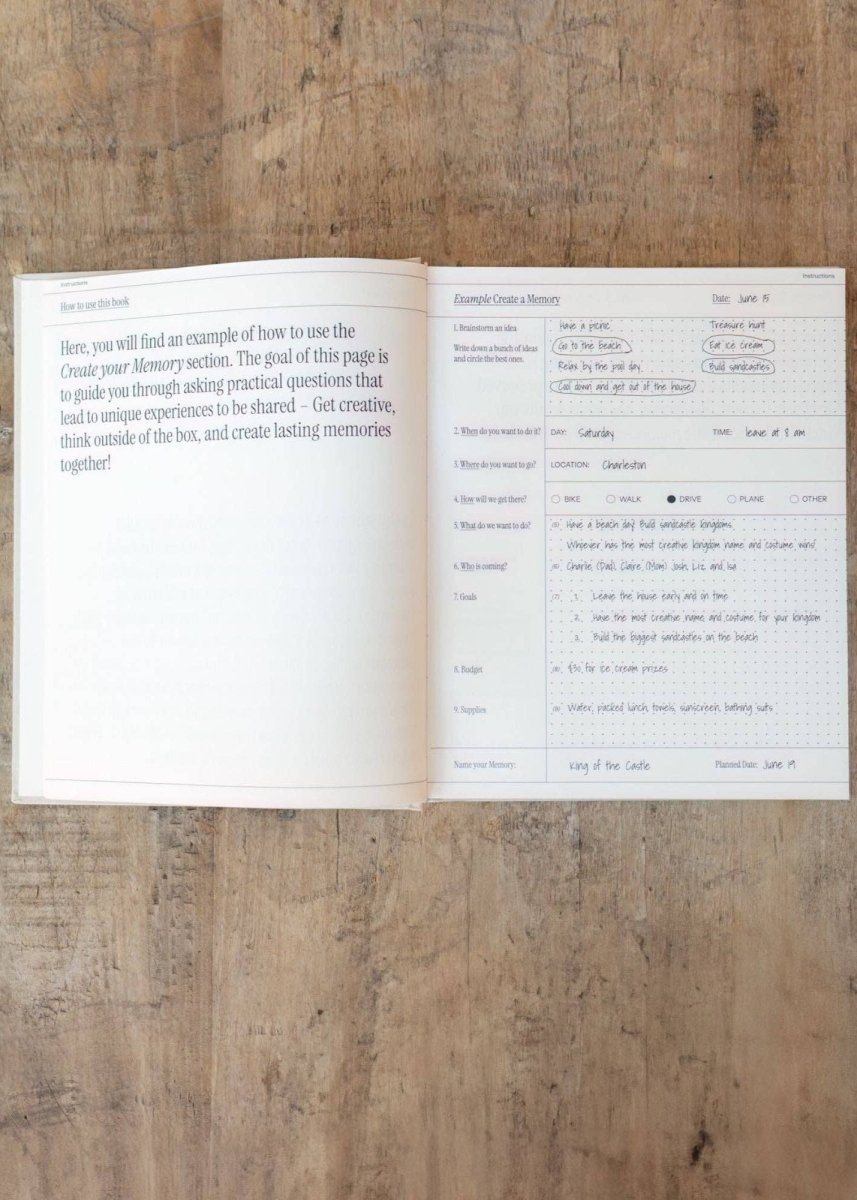 Instructions
How to use this book
Here, you will find an example of how to use the
Create your Memory section. The goal of this page is
to guide you through asking practical questions that
lead to unique experiences to be shared – Get creative,
think outside of the box, and create lasting memories
together!
Instructions
Example Create a Memory Date: June 15
1. Brainstorm an idea
Write down a bunch of ideas
and circle the best ones.
Have a picnic Treasure hunt
Go to the beach Eat ice cream
Relax by the pool day Build sandcastles
Cool down and get out of the house
2. When do you want to do it? DAY: Saturday TIME: leave at 8 am
3. Where do you want to go? LOCATION: Charleston
4. How will we get there? BIKE WALK DRIVE PLANE OTHER
5. What do we want to do? (5) Have a beach day. Build sandcastle kingdoms.
Whoever has the most creative kingdom name and costume, wins!
6. Who is coming? (6) Charlie, (Dad), Claire, (Mom) Josh, Liz and Isa
7. Goals (7) 1. Leave the house early and on time
2. Have the most creative name and costume for your kingdom
3. Build the biggest sandcastles on the beach
8. Budget (8) $30 for ice cream prizes
9. Supplies (9) Water, packed lunch, towels, sunscreen, bathing suits
Name your Memory: King of the Castle Planned Date: June 19